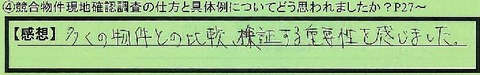 ④競合物件現地確認調査の仕方と具体例についてどう思われましたか？P27～
【感想】多くの物件との比較、検証する重要性を感じました。